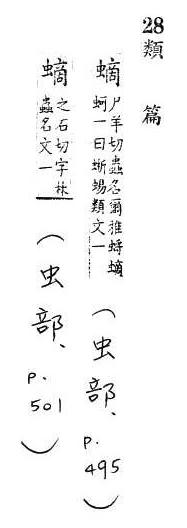 28 類篇
螪 尸羊切蟲名爾雅蜉螪
蚵一曰蜥蜴類文一
(虫部、p.495)
螪 之石切字林
蟲名文一
(虫部、p.501)